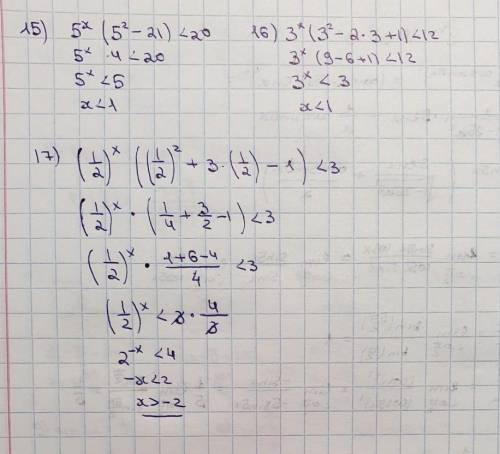 15) 5^x (5^2 - 21) < 20
5^x · 4 < 20
5^x < 5
x < 1
16) 3^x (3^2 - 2·3 + 1) < 12
3^x (9 - 6 + 1) < 12
3^x < 3
x < 1
17) (1/2)^x ((1/2)^2 + 3·(1/2) - 1) < 3
(1/2)^x · (1/4 + 3/2 - 1) < 3
(1/2)^x · (1+6-4)/4 < 3
(1/2)^x < 3 · 4/3
2^-x < 4
-x < 2
x > -2